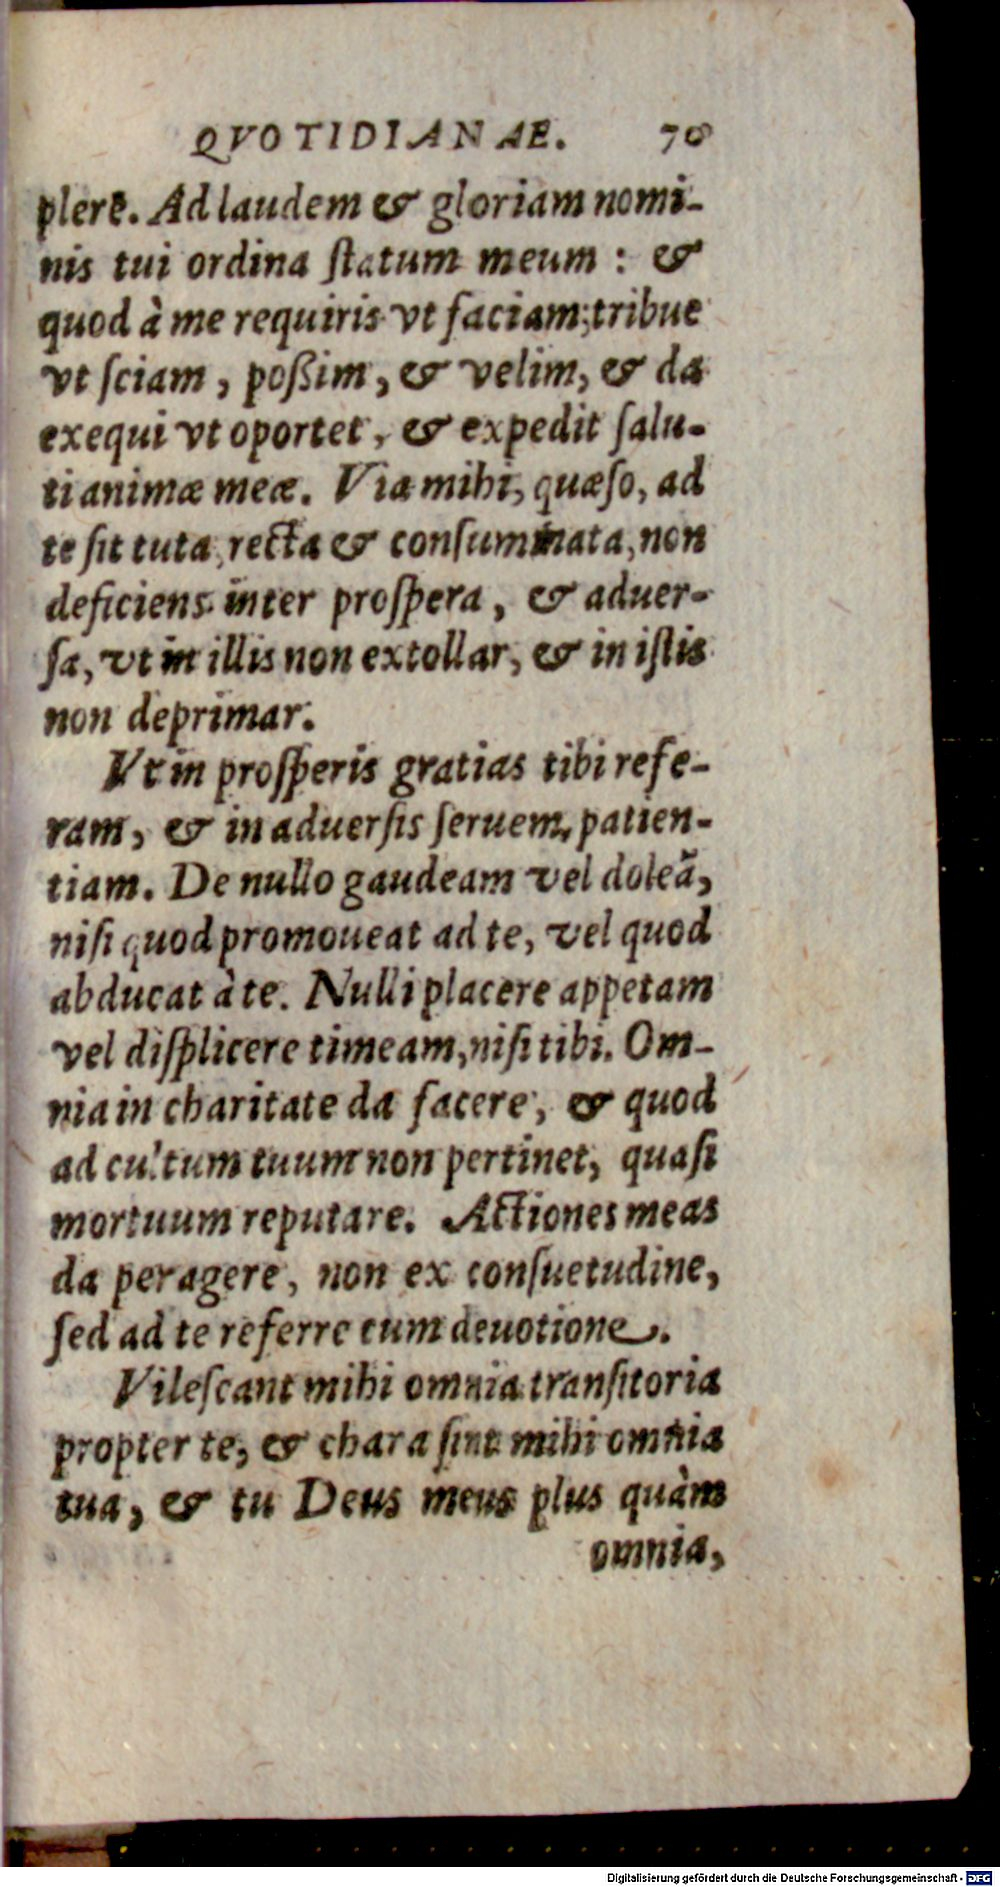 QVOTIDIANAE. 70
plere. Ad laudem & gloriam nomi-
nis tui ordina ſtatum meum : &
quod à me requiris vt faciam; tribue
vt ſciam, poßim, & velim, & da
exequi vt oportet, & expedit ſalu-
ti animæ meæ. Via mihi, quæſo, ad
te ſit tuta, recta & conſummata, non
deficiens inter proſpera, & aduer-
ſa, vt in illis non extollar, & in iſtis
non deprimar.
Vt in proſperis gratias tibi refe-
ram, & in aduerſis ſeruem patien-
tiam. De nullo gaudeam vel doleã,
niſi quod promoueat ad te, vel quod
abducat à te. Nulli placere appetam
vel diſplicere timeam, niſi tibi. Om-
nia in charitate da facere, & quod
ad cultum tuum non pertinet, quaſi
mortuum reputare. Actiones meas
da peragere, non ex conſuetudine,
ſed ad te referre cum deuotione.
Vileſcant mihi omnia tranſitoria
propter te, & chara ſint mihi omnia
tua, & tu Deus meus plus quàm
omnia,
Digitalisierung gefördert durch die Deutsche Forschungsgemeinschaft - DFG